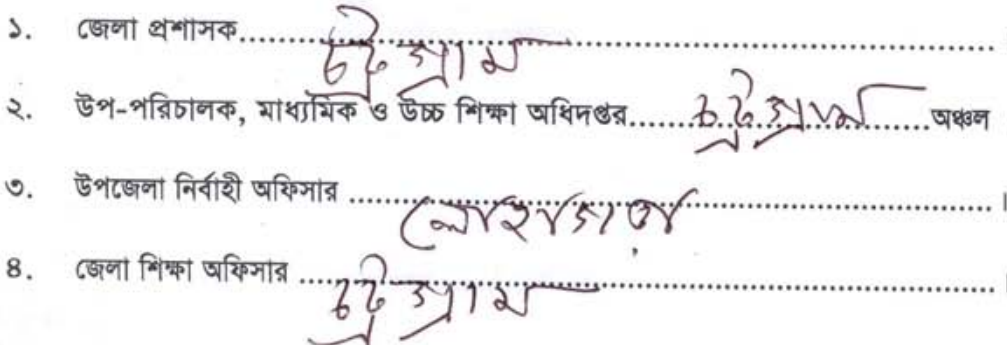 ১. জেলা প্রশাসক.......চট্টগ্রাম.......।
২. উপ-পরিচালক, মাধ্যমিক ও উচ্চ শিক্ষা অধিদপ্তর.......চট্টগ্রাম.......অঞ্চল
৩. উপজেলা নির্বাহী অফিসার .......লোহাগাড়া.......।
৪. জেলা শিক্ষা অফিসার .......চট্টগ্রাম.......।